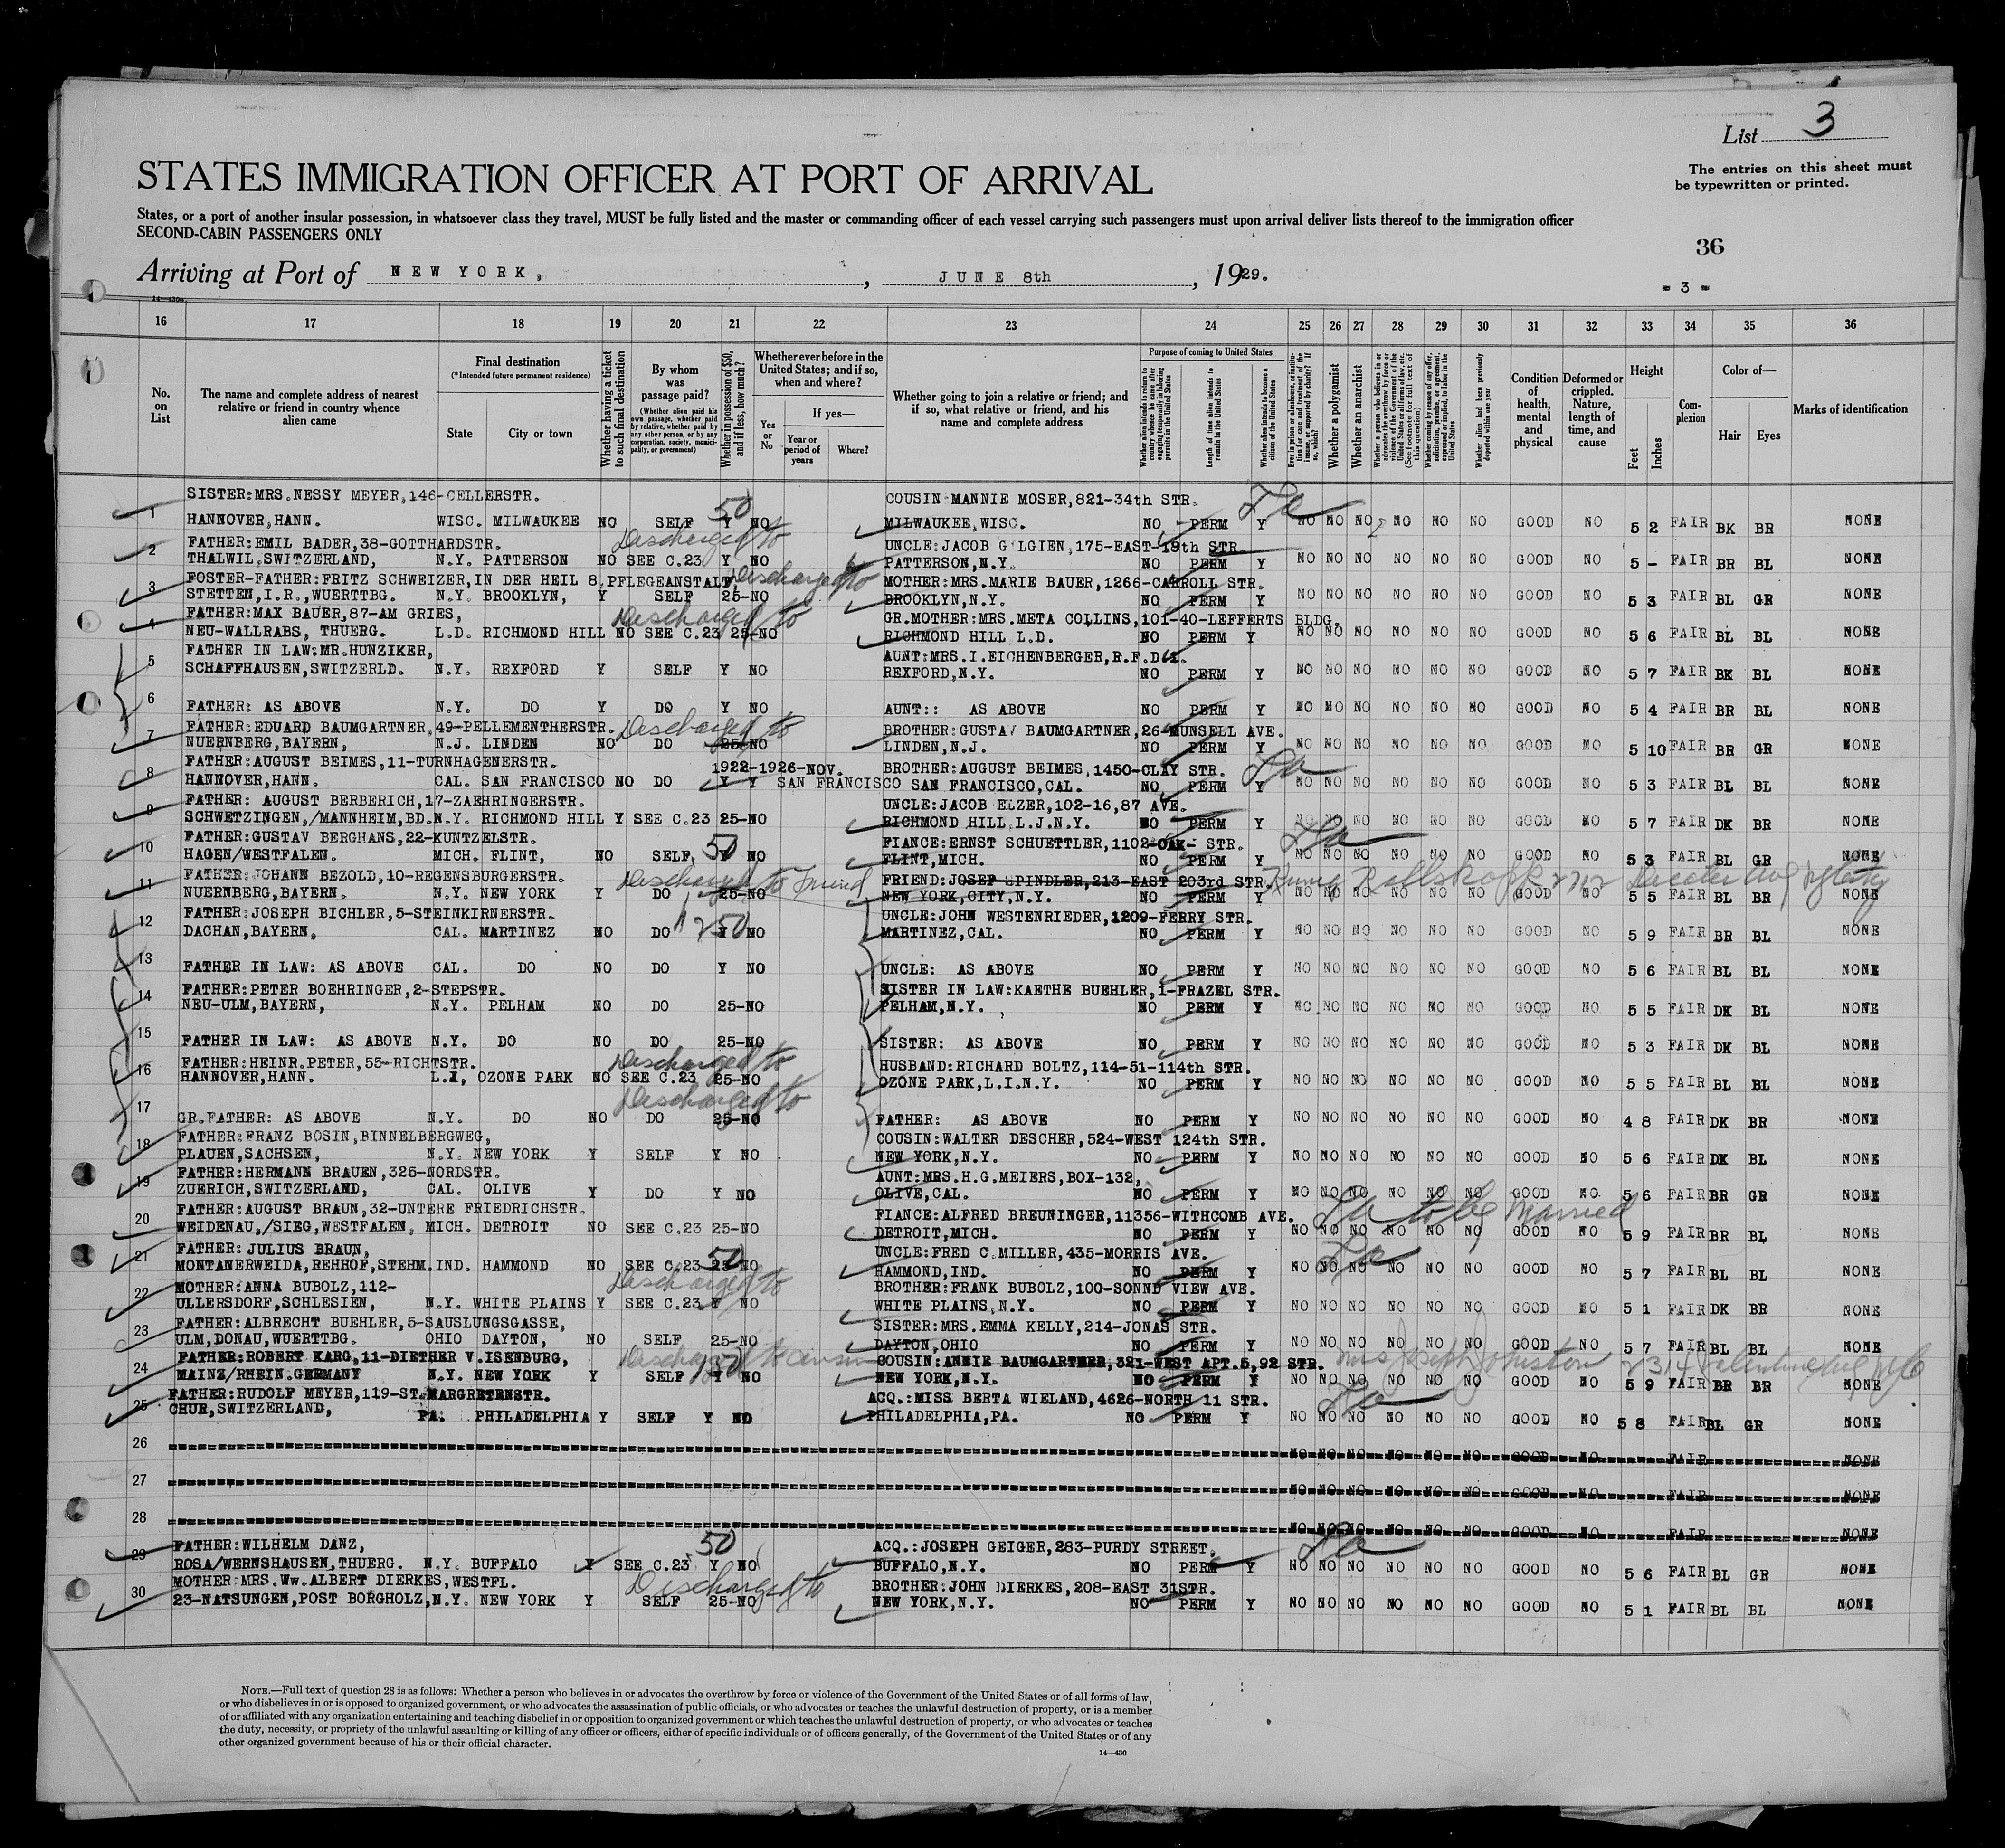 List 3
The entries on this sheet must
be typewritten or printed.
STATES IMMIGRATION OFFICER AT PORT OF ARRIVAL
States, or a port of another insular possession, in whatsoever class they travel, MUST be fully listed and the master or commanding officer of each vessel carrying such passengers must upon arrival deliver lists thereof to the immigration officer
SECOND-CABIN PASSENGERS ONLY
36
Arriving at Port of NEW YORK, , JUNE 8th , 1929.
- 3 -
14—430a
16 17 18 19 20 21 22 23 24 25 26 27 28 29 30 31 32 33 34 35 36
No. on List
The name and complete address of nearest relative or friend in country whence alien came
Final destination (*Intended future permanent residence)
State
City or town
Whether having a ticket to such final destination
By whom was passage paid?
(Whether alien paid his own passage, whether paid by relative, whether paid by any other person, or by any corporation, society, municipality, or government)
Whether in possession of $50, and if less, how much?
Whether ever before in the United States; and if so, when and where?
Yes or No
If yes—
Year or period of years
Where?
Whether going to join a relative or friend; and if so, what relative or friend, and his name and complete address
Purpose of coming to United States
Whether alien intends to return to country whence he came after engaging temporarily in laboring pursuits in the United States
Length of time alien intends to remain in the United States
Whether alien intends to become a citizen of the United States
Ever in prison or almshouse, or institution for care and treatment of the insane, or supported by charity? If so, which?
Whether a polygamist
Whether an anarchist
Whether a person who believes in or advocates the overthrow by force or violence of the Government of the United States or all forms of law, etc. (See footnote for full text of this question)
Whether coming by reason of any offer, solicitation, promise, or agreement, expressed or implied, to labor in the United States
Whether alien had been previously deported within one year
Condition of health, mental and physical
Deformed or crippled. Nature, length of time, and cause
Height
Feet
Inches
Complexion
Color of—
Hair
Eyes
Marks of identification
SISTER:MRS.NESSY MEYER,146-CELLERSTR. 50 COUSIN:MANNIE MOSER,821-34th STR.
1 HANNOVER,HANN. WISC. MILWAUKEE NO SELF Y NO MILWAUKEE,WISC. NO PERM Y NO NO NO NO NO NO GOOD NO 5 2 FAIR BK BR NONE
FATHER:EMIL BADER,38-GOTTHARDSTR. Discharged to UNCLE:JACOB GILGIEN,175-EAST-19th STR.
2 THALWIL,SWITZERLAND, N.Y. PATTERSON NO SEE C.23 Y NO PATTERSON,N.Y. NO PERM Y NO NO NO NO NO NO GOOD NO 5 - FAIR BR BL NONE
FOSTER-FATHER:FRITZ SCHWEIZER,IN DER HEIL &,PFLEGEANSTALT Discharged to MOTHER:MRS.MARIE BAUER,1266-CARROLL STR.
3 STETTEN,I.R.,WUERTTBG. N.Y. BROOKLYN, Y SELF 25-NO BROOKLYN,N.Y. NO PERM Y NO NO NO NO NO NO GOOD NO 5 3 FAIR BL GR NONE
FATHER:MAX BAUER,87-AM GRIES, Discharged to GR.MOTHER:MRS.META COLLINS,101-40-LEFFERTS BLDG.
4 NEU-WALLRABS, THUERG. L.D. RICHMOND HILL NO SEE C.23 25-NO RICHMOND HILL L.D. NO PERM Y NO NO NO NO NO NO GOOD NO 5 6 FAIR BL BL NONE
FATHER IN LAW:MR.HUNZIKER, AUNT:MRS.I.EICHENBERGER,R.F.D.1.
5 SCHAFFHAUSEN,SWITZERLD. N.Y. REXFORD Y SELF Y NO REXFORD,N.Y. NO PERM Y NO NO NO NO NO NO GOOD NO 5 7 FAIR BK BL NONE
6 FATHER: AS ABOVE N.Y. DO Y DO Y NO AUNT:: AS ABOVE NO PERM Y NO NO NO NO NO NO GOOD NO 5 4 FAIR BR BL NONE
FATHER:EDUARD BAUMGARTNER,49-PELLEMENTHERSTR. Discharged to BROTHER:GUSTAV BAUMGARTNER,26-MUNSELL AVE.
7 NUERNBERG,BAYERN, N.J. LINDEN NO DO 25-NO LINDEN,N.J. NO PERM Y NO NO NO NO NO NO GOOD NO 5 10 FAIR BR GR NONE
FATHER:AUGUST BEIMES,11-TURNHAGENERSTR. 1922-1926-NOV. BROTHER:AUGUST BEIMES,1450-CLAY STR.
8 HANNOVER,HANN. CAL. SAN FRANCISCO NO DO Y Y SAN FRANCISCO SAN FRANCISCO,CAL. NO PERM Y NO NO NO NO NO NO GOOD NO 5 3 FAIR BL BL NONE
FATHER: AUGUST BERBERICH,17-ZAEHRINGERSTR. UNCLE:JACOB ELZER,102-16,87 AVE.
9 SCHWETZINGEN,/MANNHEIM,BD. N.Y. RICHMOND HILL Y SEE C.23 25-NO RICHMOND HILL L.J.N.Y. NO PERM Y NO NO NO NO NO NO GOOD NO 5 7 FAIR DK BR NONE
FATHER:GUSTAV BERGHANS,22-KUNTZELSTR. 50 FIANCE:ERNST SCHUETTLER,1102-OAK- STR.
10 HAGEN/WESTFALEN. MICH. FLINT, NO SELF, Y NO FLINT,MICH. NO PERM Y NO NO NO NO NO NO GOOD NO 5 3 FAIR BL GR NONE
FATHER:JOHANN BEZOLD,10-REGENSBURGERSTR. Discharged to friend FRIEND:JOSEF SPINDLER,213-EAST 203rd STR.
11 NUERNBERG,BAYERN. N.Y. NEW YORK Y DO 25-NO NEW YORK,CITY,N.Y. NO PERM Y NO NO NO NO NO NO GOOD NO 5 5 FAIR BL BR NONE
FATHER:JOSEPH BICHLER,5-STEINKIRNERSTR. UNCLE:JOHN WESTENRIEDER,1209-FERRY STR.
12 DACHAN,BAYERN, CAL. MARTINEZ NO DO Y NO MARTINEZ,CAL. NO PERM Y NO NO NO NO NO NO GOOD NO 5 9 FAIR BR BL NONE
13 FATHER IN LAW: AS ABOVE CAL. DO NO DO Y NO UNCLE: AS ABOVE NO PERM Y NO NO NO NO NO NO GOOD NO 5 6 FAIR BL BL NONE
FATHER:PETER BOEHRINGER,2-STEPSTR. SISTER IN LAW:KAETHE BUEHLER,1-FRAZEL STR.
14 NEU-ULM,BAYERN, N.Y. PELHAM NO DO 25-NO PELHAM,N.Y. NO PERM Y NO NO NO NO NO NO GOOD NO 5 5 FAIR DK BL NONE
15 FATHER IN LAW: AS ABOVE N.Y. DO NO DO 25-NO SISTER: AS ABOVE NO PERM Y NO NO NO NO NO NO GOOD NO 5 3 FAIR DK BL NONE
FATHER:HEINR.PETER,55-RICHTSTR. Discharged to HUSBAND:RICHARD BOLTZ,114-51-114th STR.
16 HANNOVER,HANN. L.I, OZONE PARK NO SEE C.23 25-NO OZONE PARK,L.I.N.Y. NO PERM Y NO NO NO NO NO NO GOOD NO 5 5 FAIR BL BL NONE
Discharged to
17 GR.FATHER: AS ABOVE N.Y. DO NO DO 25-NO FATHER: AS ABOVE NO PERM Y NO NO NO NO NO NO GOOD NO 4 8 FAIR DK BR NONE
FATHER:FRANZ BOSIN,BINNELBERGWEG, COUSIN:WALTER DESCHER,524-WEST 124th STR.
18 PLAUEN,SACHSEN, N.Y. NEW YORK Y SELF Y NO NEW YORK,N.Y. NO PERM Y NO NO NO NO NO NO GOOD NO 5 6 FAIR DK BL NONE
FATHER:HERMANN BRAUEN,325-NORDSTR. AUNT:MRS.H.G.MEIERS,BOX-132,
19 ZUERICH,SWITZERLAND, CAL. OLIVE Y DO Y NO OLIVE,CAL. NO PERM Y NO NO NO NO NO NO GOOD NO 5 6 FAIR BR GR NONE
FATHER:AUGUST BRAUN,32-UNTERE FRIEDRICHSTR. FIANCE:ALFRED BREUNINGER,11356-WITHCOMB AVE. to be married
20 WEIDENAU,/SIEG,WESTFALEN, MICH. DETROIT NO SEE C.23 25-NO DETROIT,MICH. NO PERM Y NO NO NO NO NO NO GOOD NO 5 9 FAIR BR BL NONE
FATHER:JULIUS BRAUN, 50 UNCLE:FRED C.MILLER,435-MORRIS AVE.
21 MONTANERWEIDA,REHHOF,STEHM. IND. HAMMOND NO SEE C.23 25-NO HAMMOND,IND. NO PERM Y NO NO NO NO NO NO GOOD NO 5 7 FAIR BL BL NONE
MOTHER:ANNA BUBOLZ,112- Discharged to BROTHER:FRANK BUBOLZ,100-SONND VIEW AVE.
22 ULLERSDORF,SCHLESIEN, N.Y. WHITE PLAINS Y SEE C.23 Y NO WHITE PLAINS,N.Y. NO PERM Y NO NO NO NO NO NO GOOD NO 5 1 FAIR DK BR NONE
FATHER:ALBRECHT BUEHLER,5-SAUSLUNGSGASSE, SISTER:MRS.EMMA KELLY,214-JONAS STR.
23 ULM,DONAU,WUERTTBG. OHIO DAYTON, NO SELF 25-NO DAYTON,OHIO NO PERM Y NO NO NO NO NO NO GOOD NO 5 7 FAIR BL BL NONE
FATHER:ROBERT KARG,11-DIETHER V.ISENBURG, Discharged to cousin COUSIN:ANNIE BAUMGARTNER,321-WEST APT.5,92 STR. Mrs Joseph Johnston 2314 Valentine Ave NYC
24 MAINZ/RHEIN.GERMANY N.Y. NEW YORK Y SELF Y NO NEW YORK,N.Y. NO PERM Y NO NO NO NO NO NO GOOD NO 5 9 FAIR BR BR NONE
FATHER:RUDOLF MEYER,119-ST.MARGRETENSTR. ACQ.:MISS BERTA WIELAND,4626-NORTH 11 STR.
25 CHUR,SWITZERLAND, PA. PHILADELPHIA Y SELF Y NO PHILADELPHIA,PA. NO PERM Y NO NO NO NO NO NO GOOD NO 5 8 FAIR BL GR NONE
26 NO NO NO NO NO NO GOOD NO FAIR NONE
27 NO NO NO NO NO NO GOOD NO FAIR NONE
28 NO NO NO NO NO NO GOOD NO FAIR NONE
FATHER:WILHELM DANZ, 50 ACQ.:JOSEPH GEIGER,283-PURDY STREET,
29 ROSA/WERNSHAUSEN,THUERG. N.Y. BUFFALO Y SEE C.23 Y NO BUFFALO,N.Y. NO PERM Y NO NO NO NO NO NO GOOD NO 5 6 FAIR BL GR NONE
MOTHER:MRS.Ww.ALBERT DIERKES,WESTFL. Discharged to BROTHER:JOHN DIERKES,208-EAST 31STR.
30 23-NATSUNGEN,POST BORGHOLZ, N.Y. NEW YORK Y SELF 25-NO NEW YORK,N.Y. NO PERM Y NO NO NO NO NO NO GOOD NO 5 1 FAIR BL BL NONE
NOTE.—Full text of question 28 is as follows: Whether a person who believes in or advocates the overthrow by force or violence of the Government of the United States or of all forms of law,
or who disbelieves in or is opposed to organized government, or who advocates the assassination of public officials, or who advocates or teaches the unlawful destruction of property, or is a member
of or affiliated with any organization entertaining and teaching disbelief in or opposition to organized government or which teaches the unlawful destruction of property, or who advocates or teaches
the duty, necessity, or propriety of the unlawful assaulting or killing of any officer or officers, either of specific individuals or of officers generally, of the Government of the United States or of any
other organized government because of his or their official character.
14—430